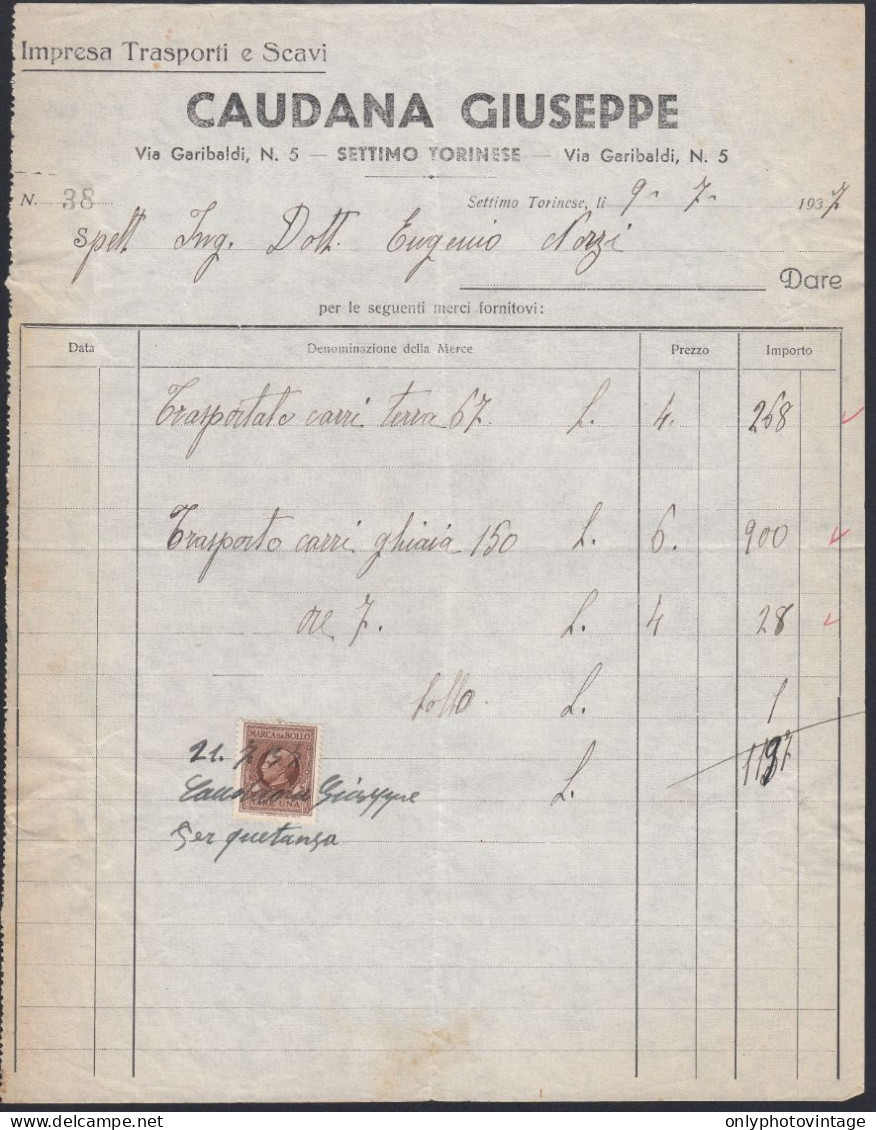 Impresa Trasporti e Scavi
CAUDANA GIUSEPPE
Via Garibaldi, N. 5 — SETTIMO TORINESE — Via Garibaldi, N. 5
N. 38 Settimo Torinese, li 9 - 7 - 1937
Spett Ing. Dott. Eugenio Norzi
Dare
per le seguenti merci fornitovi:
Data Denominazione della Merce Prezzo Importo
Trasportato carri terra 67 L. 4. 268
Trasporto carri ghiaia 150 L. 6. 900
ore 7. L. 4 28
bollo L. 1
MARCA DA BOLLO
21. 7. 37
L. 1197
Caudana Giuseppe
LIRE UNA
Per quetanza
onlyphotovintage